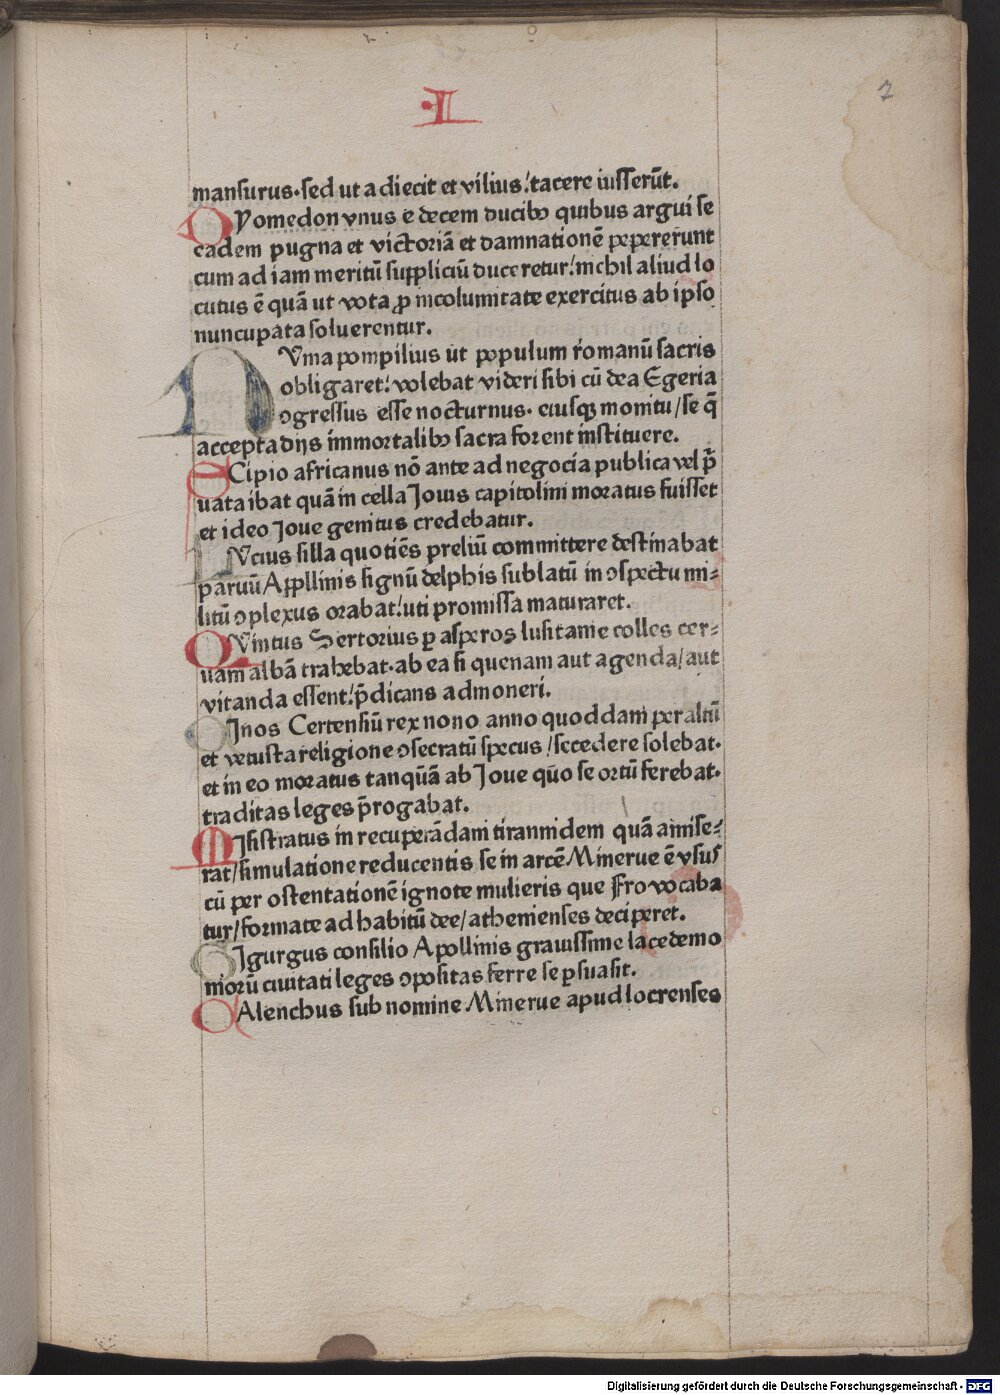 ·II
2
mansurus·sed ut adiecit et vilius/tacere iusserūt.
DYomedon vnus e decem ducibꝫ quibus argui se
eadem pugna et victoriā et damnationē pepererunt
cum ad iam meritū suppliciū duceretur/nichil aliud lo
cutus ē quā ut vota ꝓ incolumitate exercitus ab ipso
nuncupata soluerentur.
NVma pompilius ut populum romanū sacris
obligaret/volebat videri sibi cū dea Egeria
ↄgressus esse nocturnus· eiusqꝫ monitu/se q̄
accepta dijs immortalibꝫ sacra forent instituere.
SCipio africanus nō ante ad negocia publica vel p̄
uata ibat quā in cella Jouis capitolini moratus fuisset
et ideo Joue genitus credebatur.
LVcius silla quotiēs preliū committere destinabat
paruū Appllinis signū delphis sublatū in ↄspectu mi⸗
litū ↄplexus orabat/uti promissa maturaret.
QVintus Sertorius ꝑ asperos lusitanie colles cer⸗
uam albā trahebat·ab ea si quenam aut agenda/aut
vitanda essent/p̄dicans admoneri.
MJnos Certensiū rex nono anno quoddam peraltū
et vetusta religione ↄsecratū specus/secedere solebat·
et in eo moratus tanqūā ab Joue qūo se ortū ferebat·
traditas leges p̄rogabat.
PJsistratus in recuperādam tirannidem quā amise⸗
rat/simulatione reducentis se in arcē Minerue ē vsus
cū per ostentationē ignote mulieris que Fro vocaba
tur/formate ad habitū dee/athenienses deciperet.
LJgurgus consilio Apollinis grauissime lacedemo
niorū ciuitati leges ↄpositas ferre se ꝑsuasit.
ZAlenchus sub nomine Minerue apud locrenses
Digitalisierung gefördert durch die Deutsche Forschungsgemeinschaft - DFG